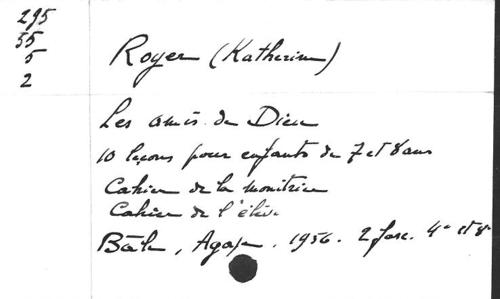 295
55
5
2
Royer (Katherine)
Les amis de Dieu
10 leçons pour enfants de 7 et 8 ans
Cahier de la monitrice
Cahier de l'élève
Bâle, Agape. 1956. 2 fasc. 4° et 8°